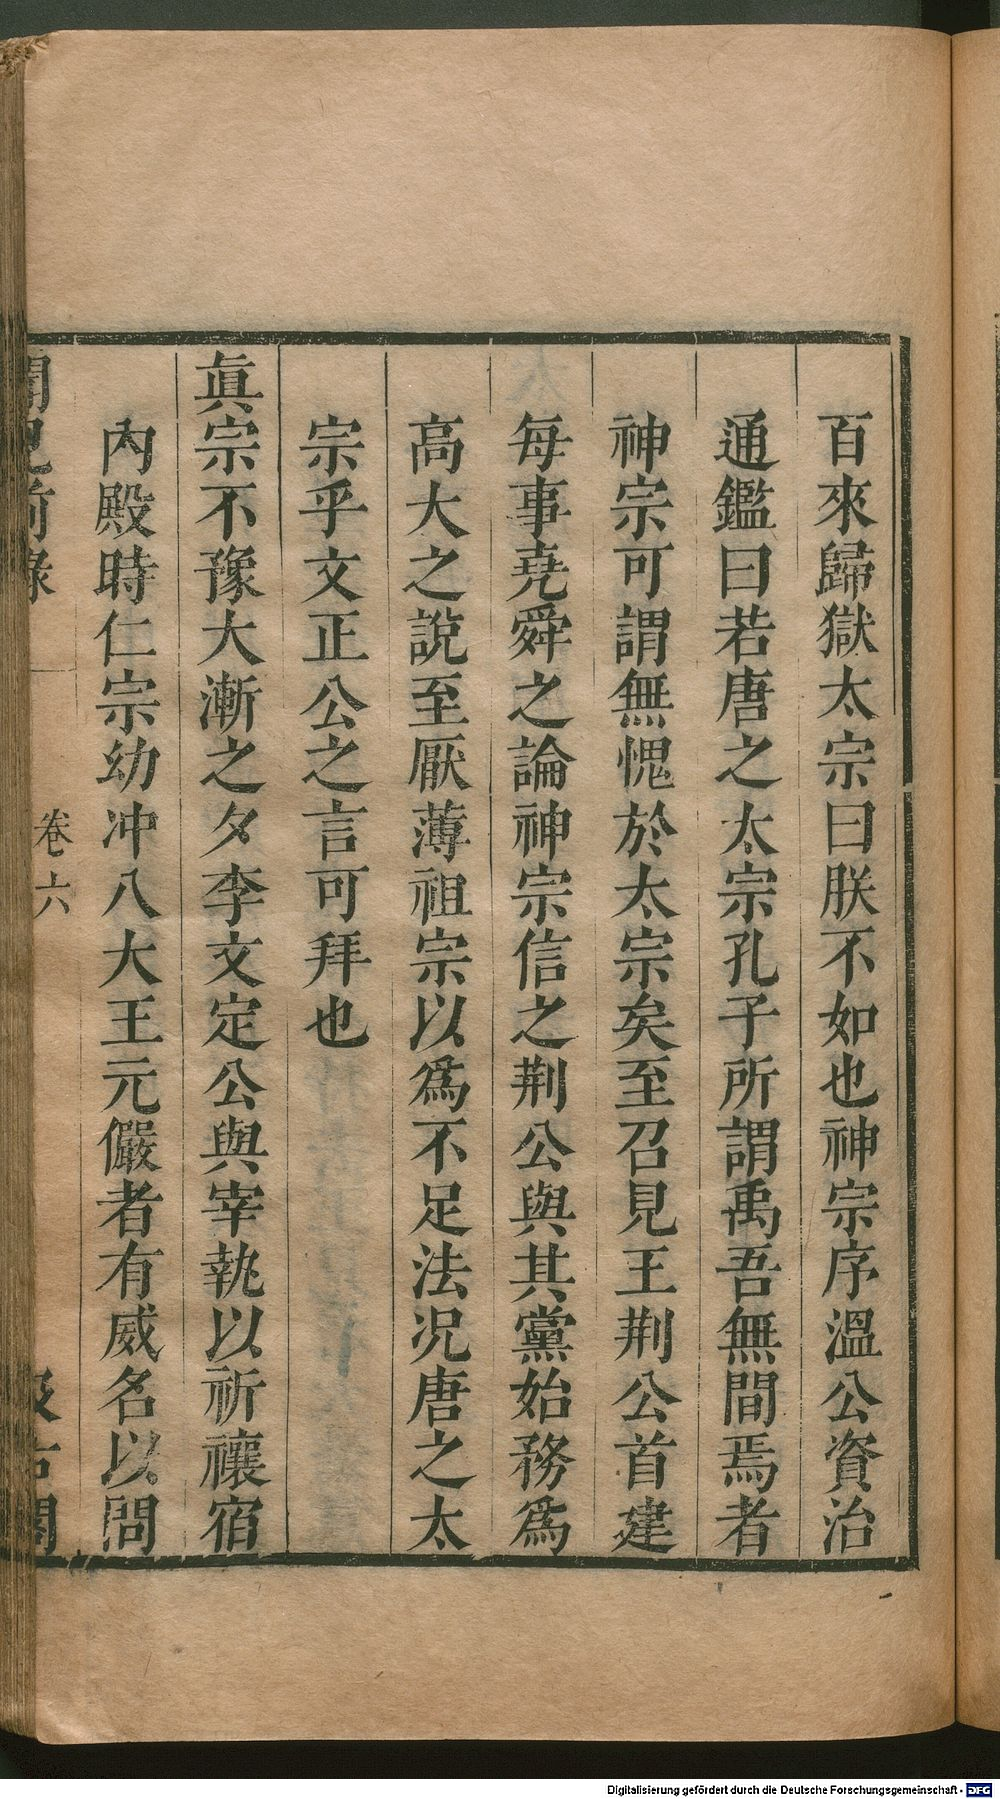 百來歸獄太宗曰朕不如也神宗序溫公資治
通鑑曰若唐之太宗孔子所謂禹吾無間焉者
神宗可謂無愧於太宗矣至召見王荆公首建
每事堯舜之論神宗信之荆公與其黨始務爲
高大之說至厭薄祖宗以爲不足法况唐之太
宗乎文正公之言可拜也
眞宗不豫大漸之夕李文定公與宰執以祈禳宿
內殿時仁宗幼冲八大王元儼者有威名以問
聞見前錄 卷六 汲古閣
Digitalisierung gefördert durch die Deutsche Forschungsgemeinschaft - DFG